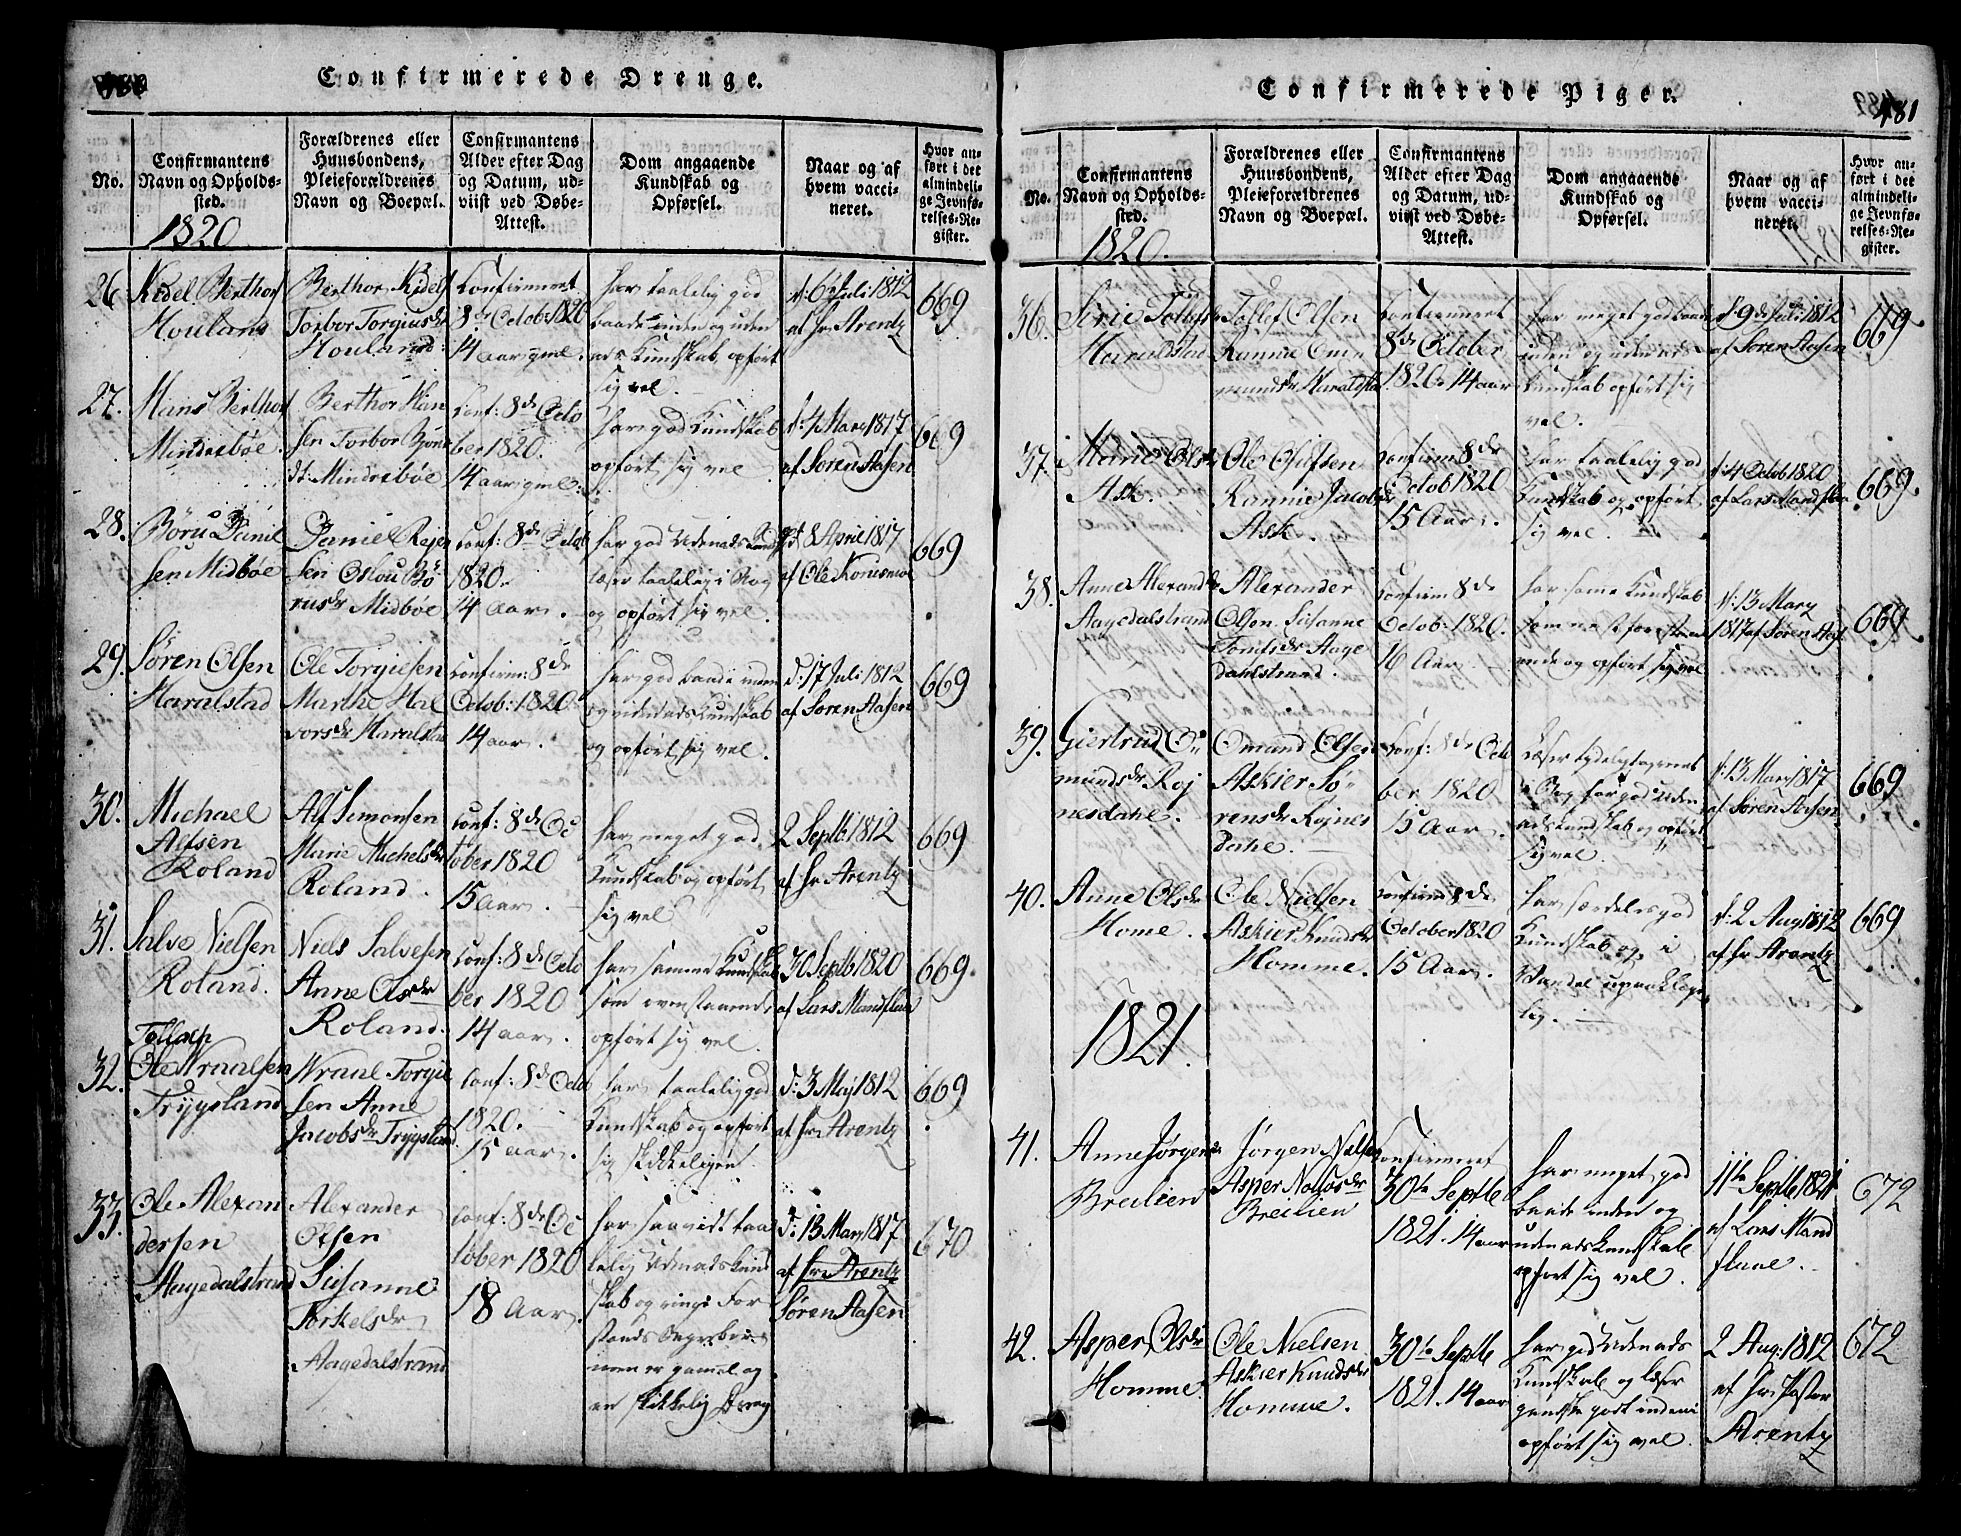 Confirmerede Drenge.
No.
Confirmantens
Navn og Opholds-
sted.
1820
Forældrenes eller
Huusbondens,
Pleieforældrenes
Navn og Boepæl.
Confirmantens
Alder efter Dag
og Datum, ud-
viist ved Døbe-
Attest.
Dom angaaende
Kundskab og
Opførsel.
Naar og af
hvem vacci-
neret.
Hvor an-
ført i det
almindeli-
ge Jevnfø-
relses-Re-
gister.
26
Kidel Berthors
Houland
Berthor Kidels
Torbor Torgiusdr
Houland
Confirmeret
8de Octob: 1820
14 aar gml.
har taalelig god
baade inden og uden
ads Kundskab opført
sig vel.
d: 6 Juli 1812
af hr Arentz
669
27.
Hans Berthors
Mindresbøe
Berthor Han
sen Torbor
Mindresbøe
Conf: 8de Octo
ber 1820.
14 aar gml.
har god Kundskab
opført sig vel
d: 4 Mary 1817
af Søren Aasen
669
28.
Børu Daniel
sen Midbøe
Daniel
sen Oslou Bø
rusdr Midbøe
Conf: 8de Octob
1820.
14 Aar.
har god Udenads
læser taalelig i Bog
og opført sig vel.
d: 8 April 1817
af Ole
669
29.
Søren Olsen
Haralstad
Ole Torgiesen
Marthe Hal
vorsdr Haralstad
Confirm: 8de
Octob: 1820
14 aar.
har god baade inden
og udenadskundskab
og opført sig vel.
d: 17 Juli 1812
af Søren Aasen
669
30.
Michael
Alfsen
Roland
Alf Simonsen
Marie Michelsdr
Roland.
Conf: 8de Oc
tober 1820
15 Aar.
har meget god
Kundskab og opført
sig vel
2 Septb 1812
af hr Arentz
669
31.
Salve Nielsen
Roland.
Niels Salvesen
Anne Olsdr
Roland.
Conf: 8de Octo
ber 1820
14 aar.
har samme Kundskab
som ovenstaaende
opført sig vel.
30 Septb 1820
af Lars Mandflaa
669
32.
Tollak
Ole Wraalsen
Trygsland
Wraal Torgie
sen Anne
Jacobsdr Trygsland.
Conf: 8de Octo
1820.
15 aar.
har taalelig god
Kundskab og opført
sig skikkeligen
d: 3 Maj 1812
af hr Arentz
669
33.
Ole Alexan
dersen
Aagedalstrand
Alexander
Olsen
Susanne
Torkelsdr
Aagedalstrand
Conf: 8de Oc
tober 1820
18 Aar.
har saavidt taa
lelig Udenadskund
skab og ringe For
stand
men er gamel og
en skikkelig Dreng
d: 13 Mary 1817
af hr Arentz
Søren Aasen
670
Confirmerede Piger.
481
No.
Confirmantens
Navn og Opholds-
sted.
1820.
Forældrenes eller
Huusbondens,
Pleieforældrenes
Navn og Boepæl.
Confirmantens
Alder efter Dag
og Datum, ud-
viist ved Døbe-
Attest.
Dom angaaende
Kundskab og
Opførsel.
Naar og af
hvem vacci-
neret.
Hvor an-
ført i det
almindeli-
ge Jevnfø-
relses-Re-
gister.
36.
Sirie Tollefsdr
Haralstad
Tollef Olsen
Rannie Om
mundsdr Haralstad
Confirmeret
8de October
1820. 14 aar
har meget god baade
inden og udenads
Kundskab opført sig
vel.
d: 9de Juli 1812
af Søren Aasen
669
37.
Marie Olsdr
Ask.
Ole Olufsen
Rannie Jacobsdr
Ask.
Confirm 8de
Octob 1820
15 Aar.
har taalelig god
Kundskab og opført
sig vel.
d: 4 Octob 1820
af Lars Mandflaa
669.
38.
Anne Alexandsdr
Aagedalstrand
Alexander
Olsen Susanne
Aage
dahlstrand.
Confirm 8de
Octob: 1820.
16 Aar.
har samme Kundskab
som næstforestaa
ende og opført sig vel
d: 13 Mary
1817 af Søren Aas
669.
39.
Giertrud O
mundsdr Roj
nesdahl.
Omund Olsen
Askier Sø
rensdr Rojnes
dahl.
Conf: 8de Octo
ber 1820
15 Aar.
Læser
i Bog har god Uden
adskundskab og opført
sig vel.
d: 13 Mary 1817
af Søren Aasen.
669
40.
Anne Olsdr
Home.
Ole Nielsen
Askier Knudsdr
Homme.
Confirm 8de
October 1820
15 Aar.
har særdeles god
Kundskab og i
Vandel upaaklage
lig.
d: 2 Aug 1812
af hr Arentz
669
1821.
41.
Anne Jørgensdr
Breilien
Jørgen Nielsen
Asper
Breilien
Confirmeret
30te Septb
1821. 14 aar
har meget god
baade inden og
udenadskundskab
opført sig vel.
11te Septb 1821
af Lars Mand
flaae.
672
42.
Asper Olsdr
Homme.
Ole Nielsen
Askier Knudsdr
Homme.
30te Septb
1821. 14 aar
har god Udenads
Kundskab og læser
ganske godt indeni
opført sig vel.
2 Aug: 1812
af hr: Pastor
Arentz
672